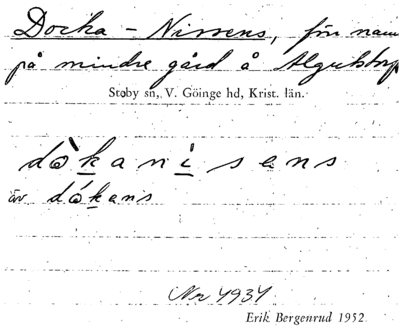 Docka - Nissens, förr namn
på mindre gård å Algustorp
Stoby sn, V. Göinge hd, Krist. län.
dòkanìsens
äv dókans
Nr 4934
Erik Bergenrud 1952.